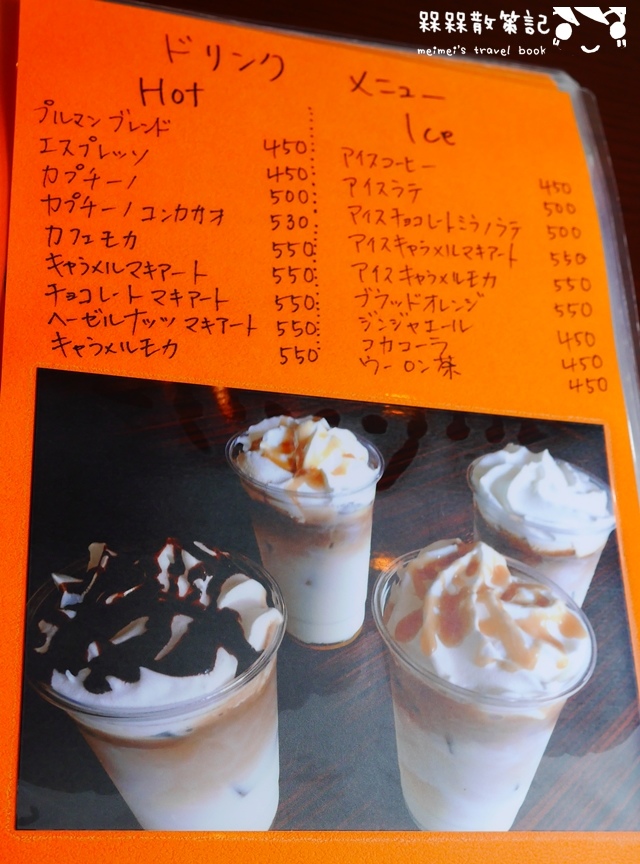 槑槑散策記
meimei's travel book
ドリンク メニュー
Hot
プルマンブレンド 450
エスプレッソ 450
カプチーノ 500
カプチーノコンカカオ 530
カフェモカ 550
キャラメルマキアート 550
チョコレートマキアート 550
ヘーゼルナッツマキアート 550
キャラメルモカ 550
Ice
アイスコーヒー 450
アイスラテ 500
アイスチョコレートミラノラテ 500
アイスキャラメルマキアート 550
アイスキャラメルモカ 550
ブラッドオレンジ 550
ジンジャエール 450
コカコーラ 450
ウーロン茶 450